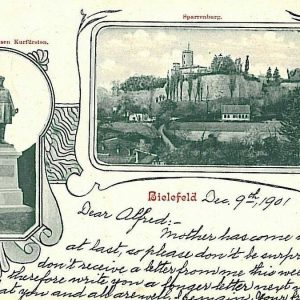 Sparrenburg.
sen Kurfürsten.
Bielefeld Dec. 9th, 1901
Dear Alfred:-
Mother has come
at last, so please don't be surpri
don't receive a letter from me this wee
therefore write you a longer letter next
at you and all are well, I remain, Your